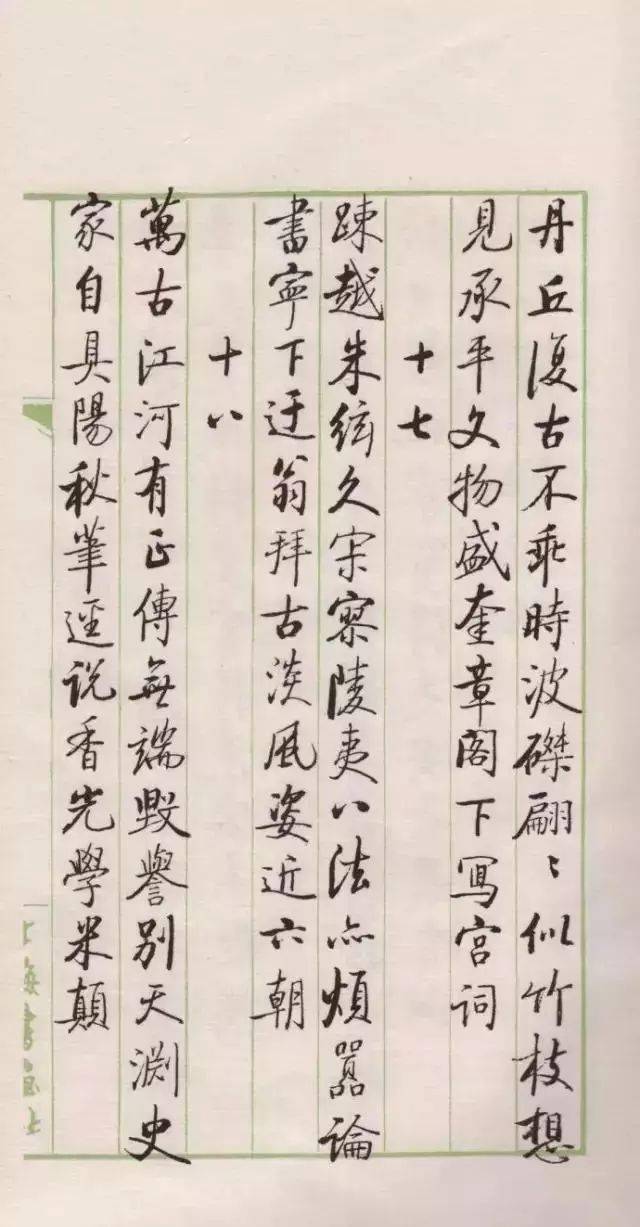 丹丘復古不乖時波磔翩〻似竹枝想
見承平文物盛奎章閣下寫宫词
十七
踈越朱絃久寂寥陵夷八法亦煩囂論
書寧下迂翁拜古淡風姿近六朝
十八
萬古江河有正傳無端毀譽別天淵史
家自具陽秋筆逕说香光學米顛